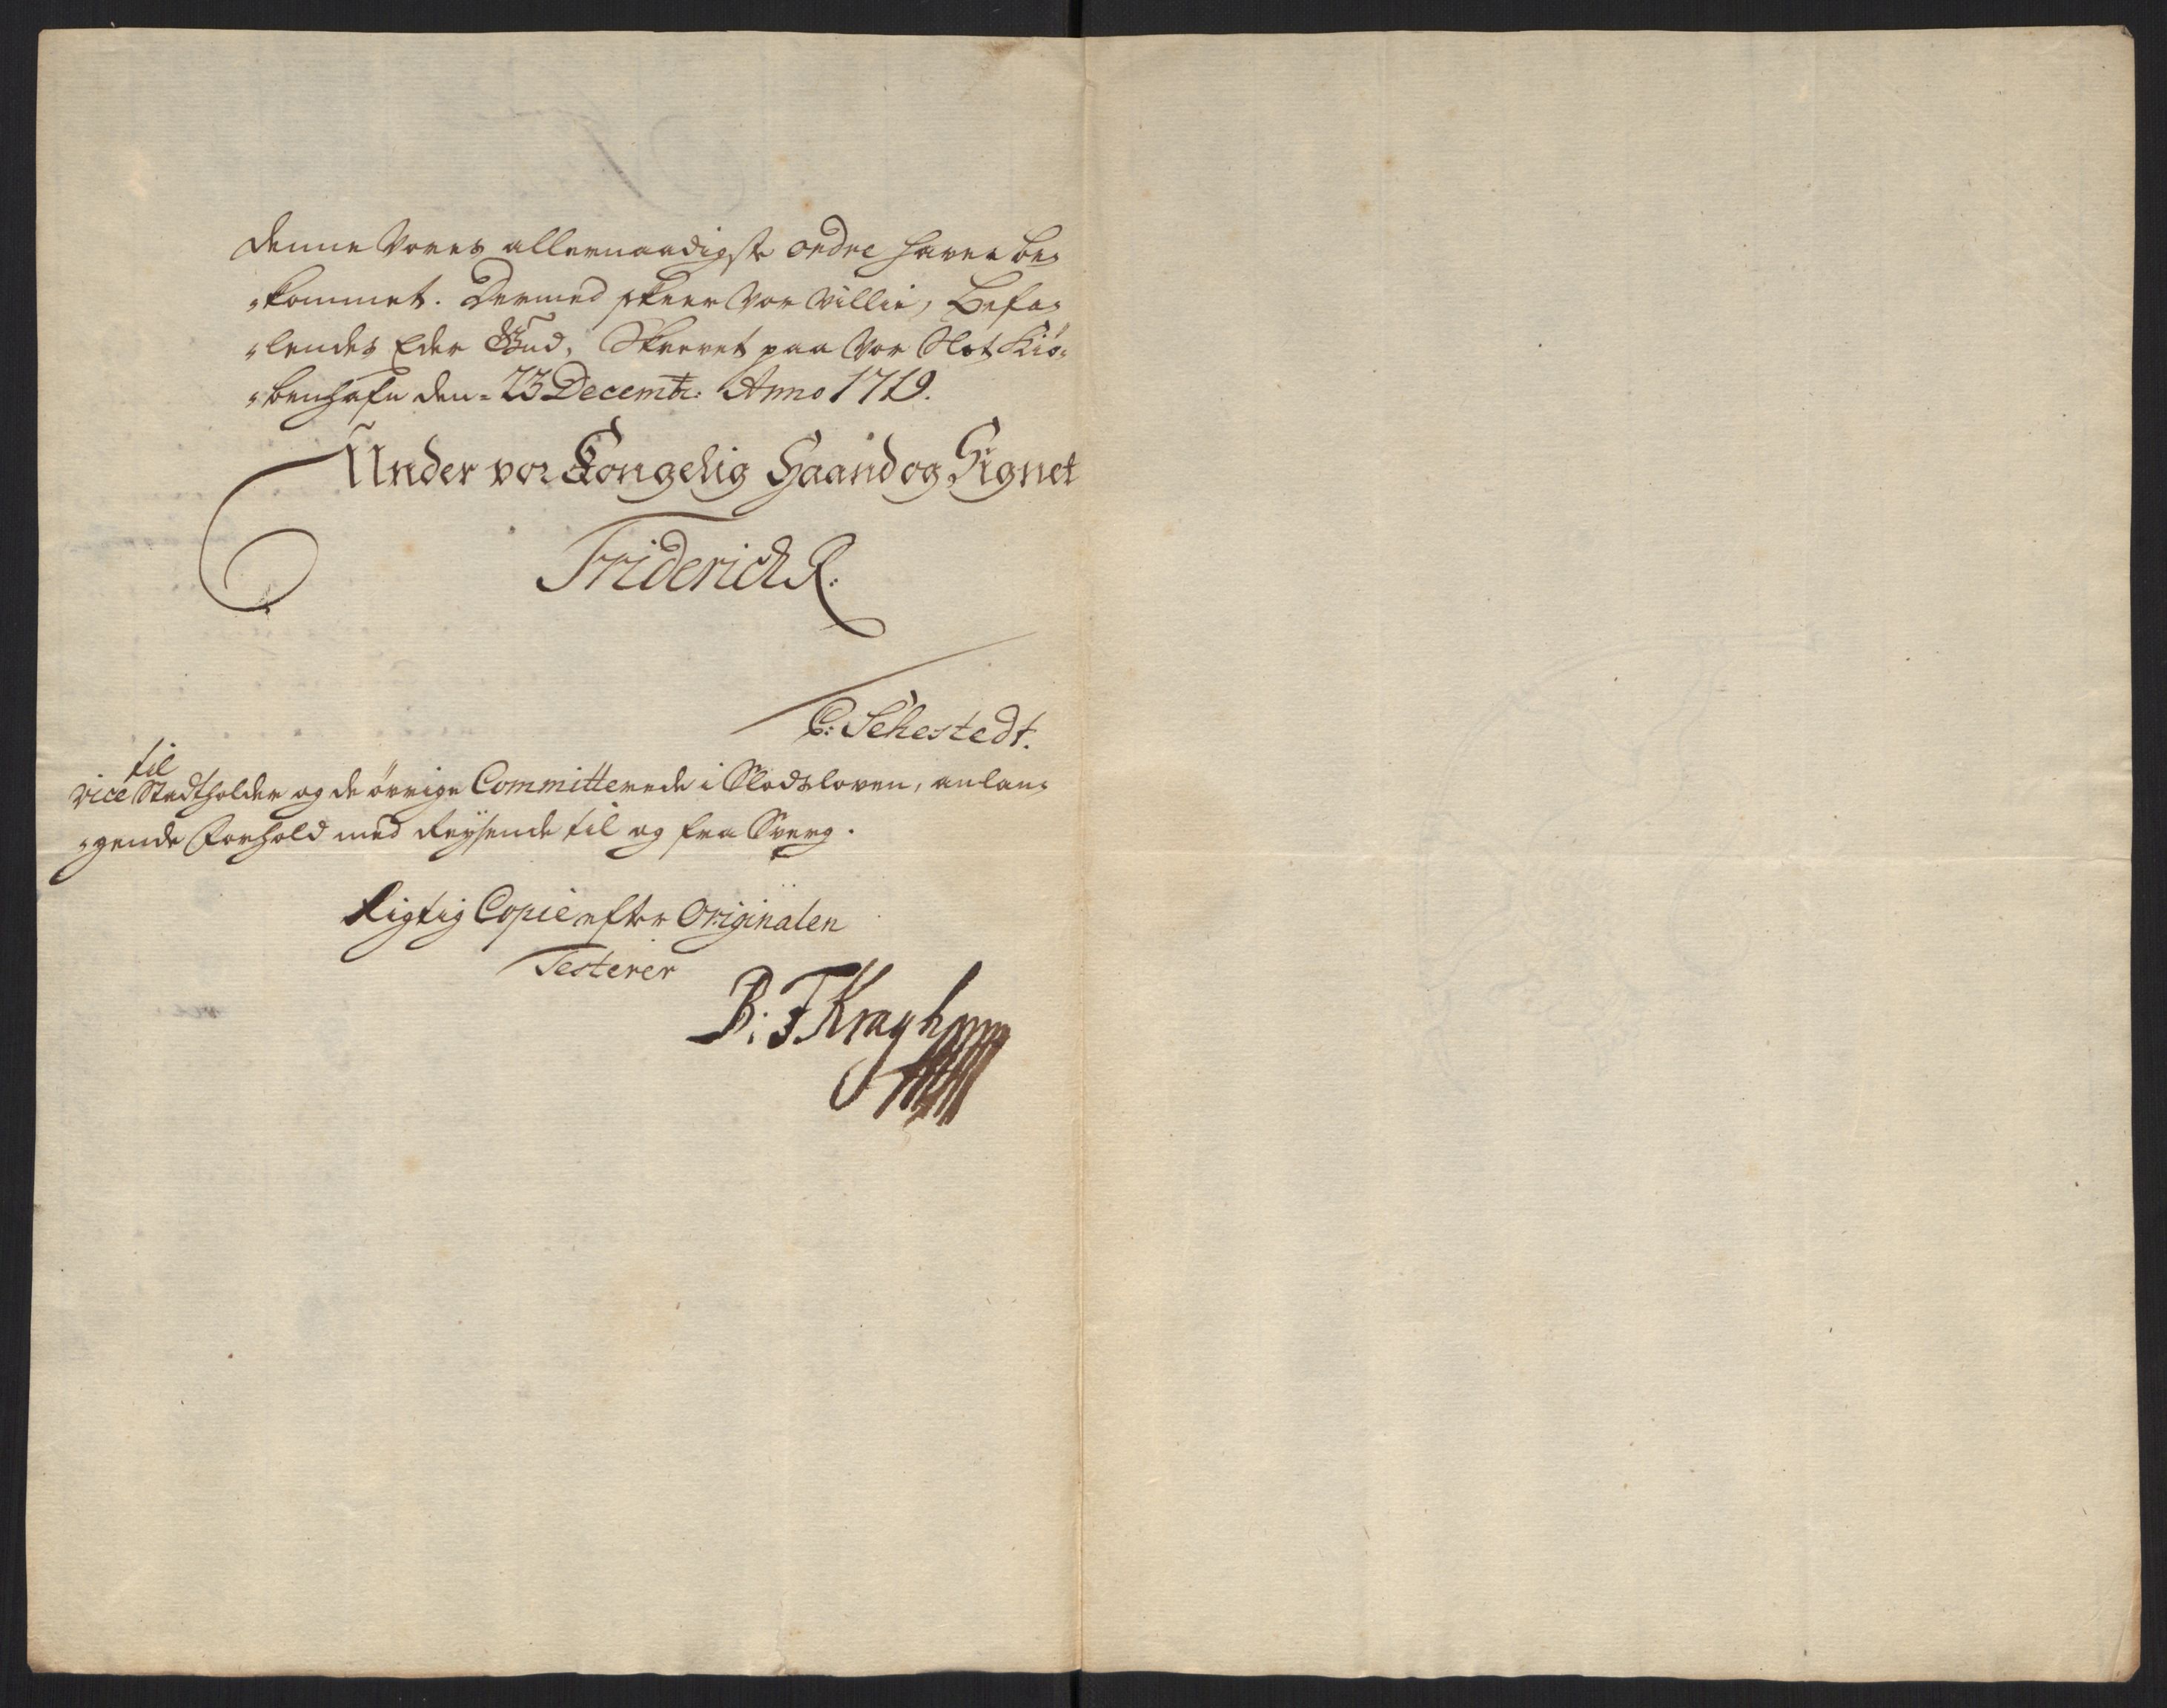 denne Vores allernaadigste ordre haver be„
„kommet. Dermed skeer Vor Villie, Befa„
„lendes Eder Gud, Skrevet paa Vor Slot Kiø„
„benhafn den 23 Decembr: Anno 1719.
Under vor Kongelig Haand og Signet
Friderich R.
C: Sehestedt.
til
vice Stadtholder og de övrige Committerede i Slodsloven, anlan„
„gende Forhold med Reysende til og fra Sverg.
Rigtig Copie efter Originalen
Testerer
B: F Kragh